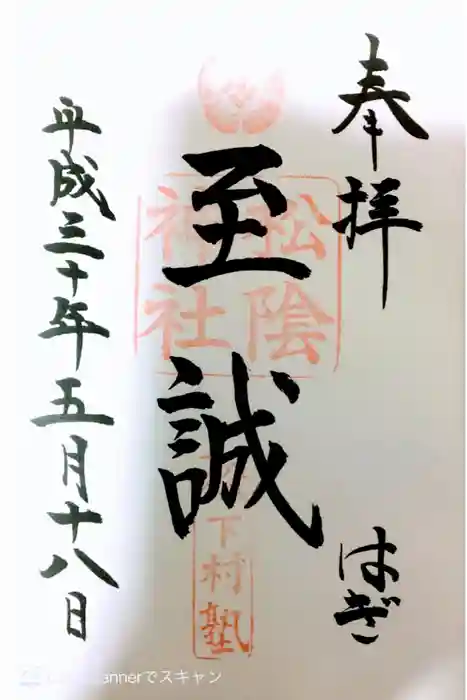 奉拝
はぎ
松陰
神社
至誠
松下村塾
平成三十年五月十八日
annerでスキャン